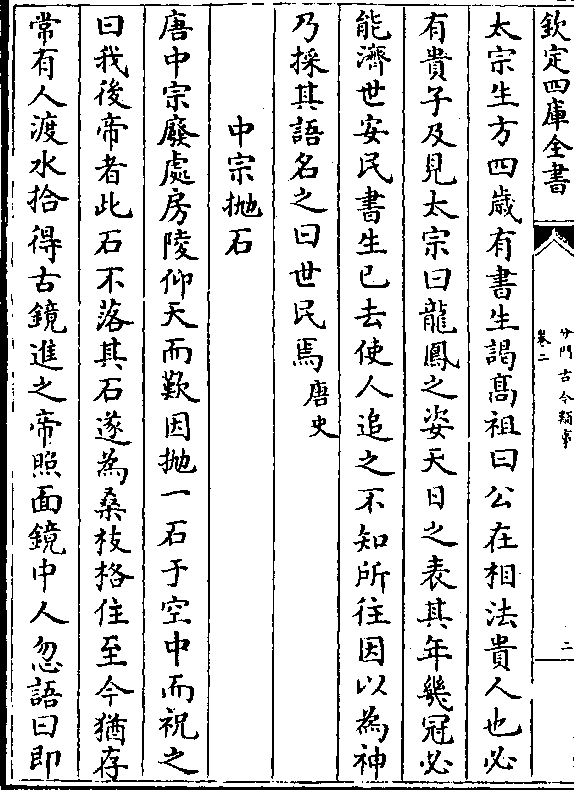 欽定四庫全書
分門古今類事
卷二
二
太宗生方四歲有書生謁髙祖曰公在相法貴人也必
有貴子及見太宗曰龍鳳之姿天日之表其年幾冠必
能濟世安民書生已去使人追之不知所往因以為神
乃採其語名之曰世民焉唐史
中宗拋石
唐中宗廢處房陵仰天而歎因拋一石于空中而祝之
曰我後帝者此石不落其石遂為桑枝格住至今猶存
常有人渡水拾得古鏡進之帝照面鏡中人忽語曰即